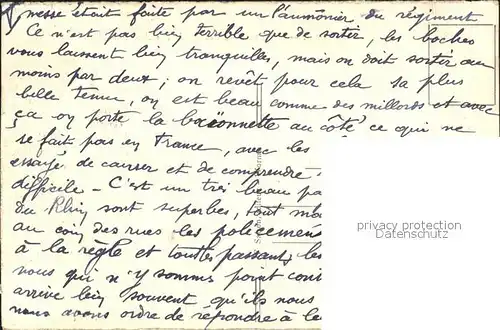 messe était faite par un l'aumônier du régiment
Ce n'est pas bien terrible que de sortir, les boches
vous laissent bien tranquilles, mais on doit sortir au
moins par deux ; on revêt pour cela sa plus
belle tenue, on est beau comme des millords et avec
ça on porte la baïonnette au côté ce qui ne
se fait pas en France, avec les
essayé de causer et de comprendre
difficile - C'est un très beau pa
du Rhin sont superbes, tout ma
au coin des rues les policemen
à la règle et tout les passants les
nous qui n'y sommes point con
arrive bien souvent qu'ils nous
nous avons ordre de répondre à le
privacy protection
Datenschutz